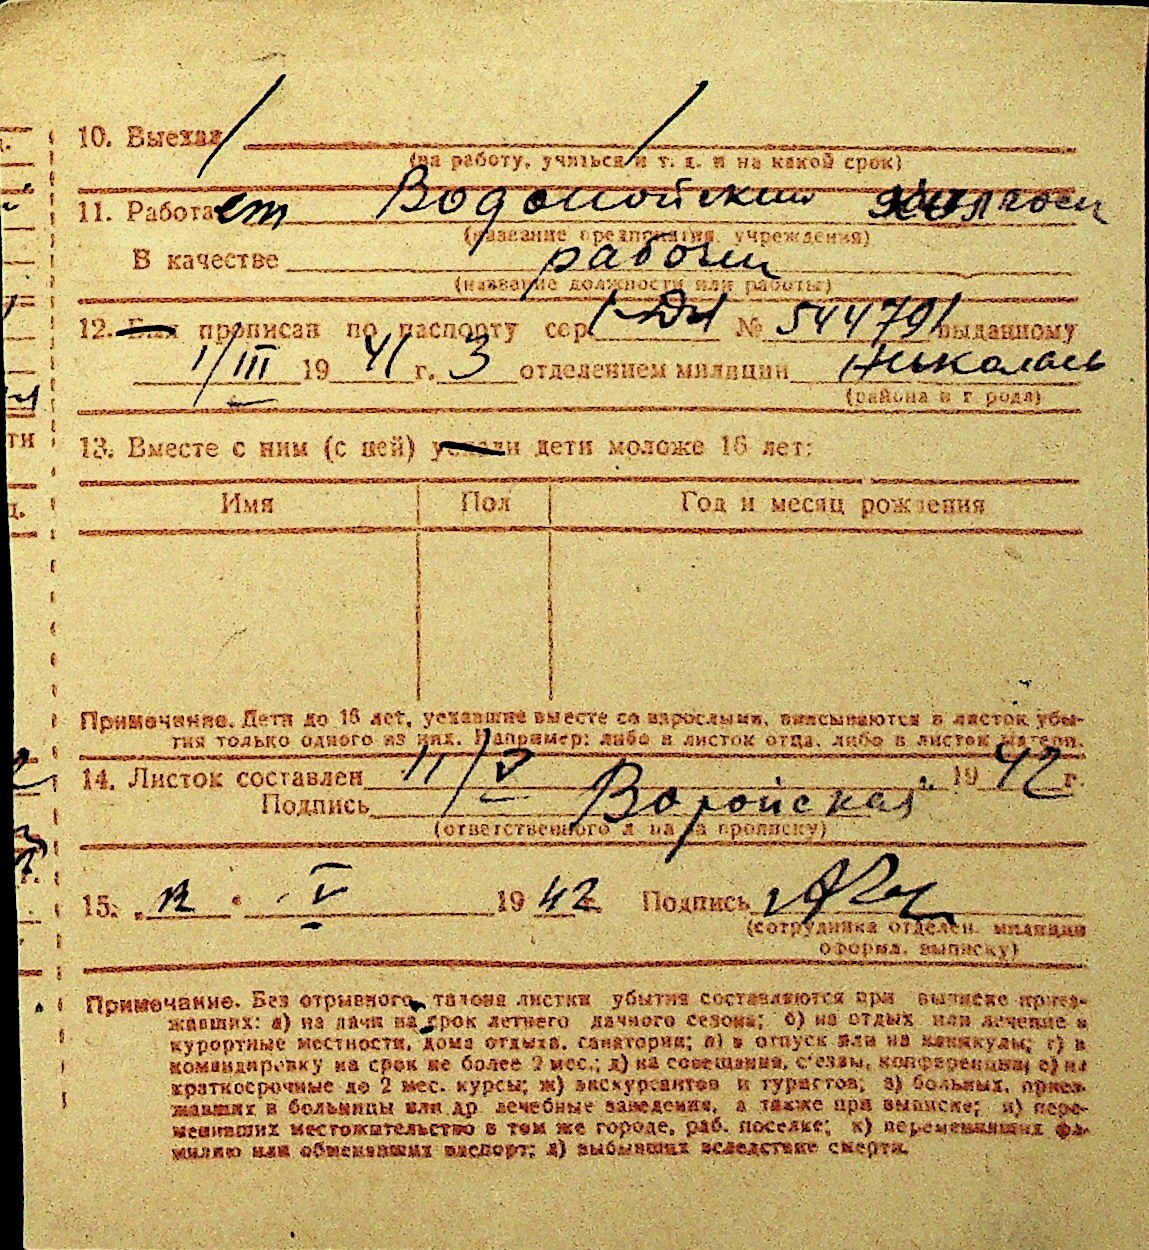 10. Выехал
(на работу, учиться и т. д. и на какой срок)
11. Работает Водопойский
(название предприятия, учреждения)
В качестве рабочий
(название должности или работы)
12. Был прописан по паспорту сер. № 544791 выданному
1/III 1941 г. 3 отделением милиции Николаев
(района в г. рода)
13. Вместе с ним (с ней) уехали дети моложе 16 лет:
Имя Пол Год и месяц рождения
Примечание. Дети до 16 лет, уехавшие вместе со взрослыми, вписываются в листок убы-
тия только одного из них. Например: либо в листок отца, либо в листок матери.
14. Листок составлен 11/V 1942 г.
Подпись
(ответственного л ца за прописку)
15. „12 “ V 1942 г. Подпись
(сотрудника отделен. милиции
оформл. выписку)
Примечание. Без отрывного талона листки убытия составляются при выписке приез-
жавших: а) на дачи на срок летнего дачного сезона; б) на отдых или лечение в
курортные местности, дома отдыха, санатории; в) в отпуск или на каникулы; г) в
командировку на срок не более 2 мес.; д) на совещания, с'езды, конференции; е) на
краткосрочные до 2 мес. курсы; ж) экскурсантов и туристов; з) больных, приез-
жавших в больницы или др лечебные заведения, а также при выписке; и) пере-
менивших местожительство в том же городе, раб. поселке; к) переменивших фа-
милию или обменявших паспорт; л) выбывших вследствие смерти.